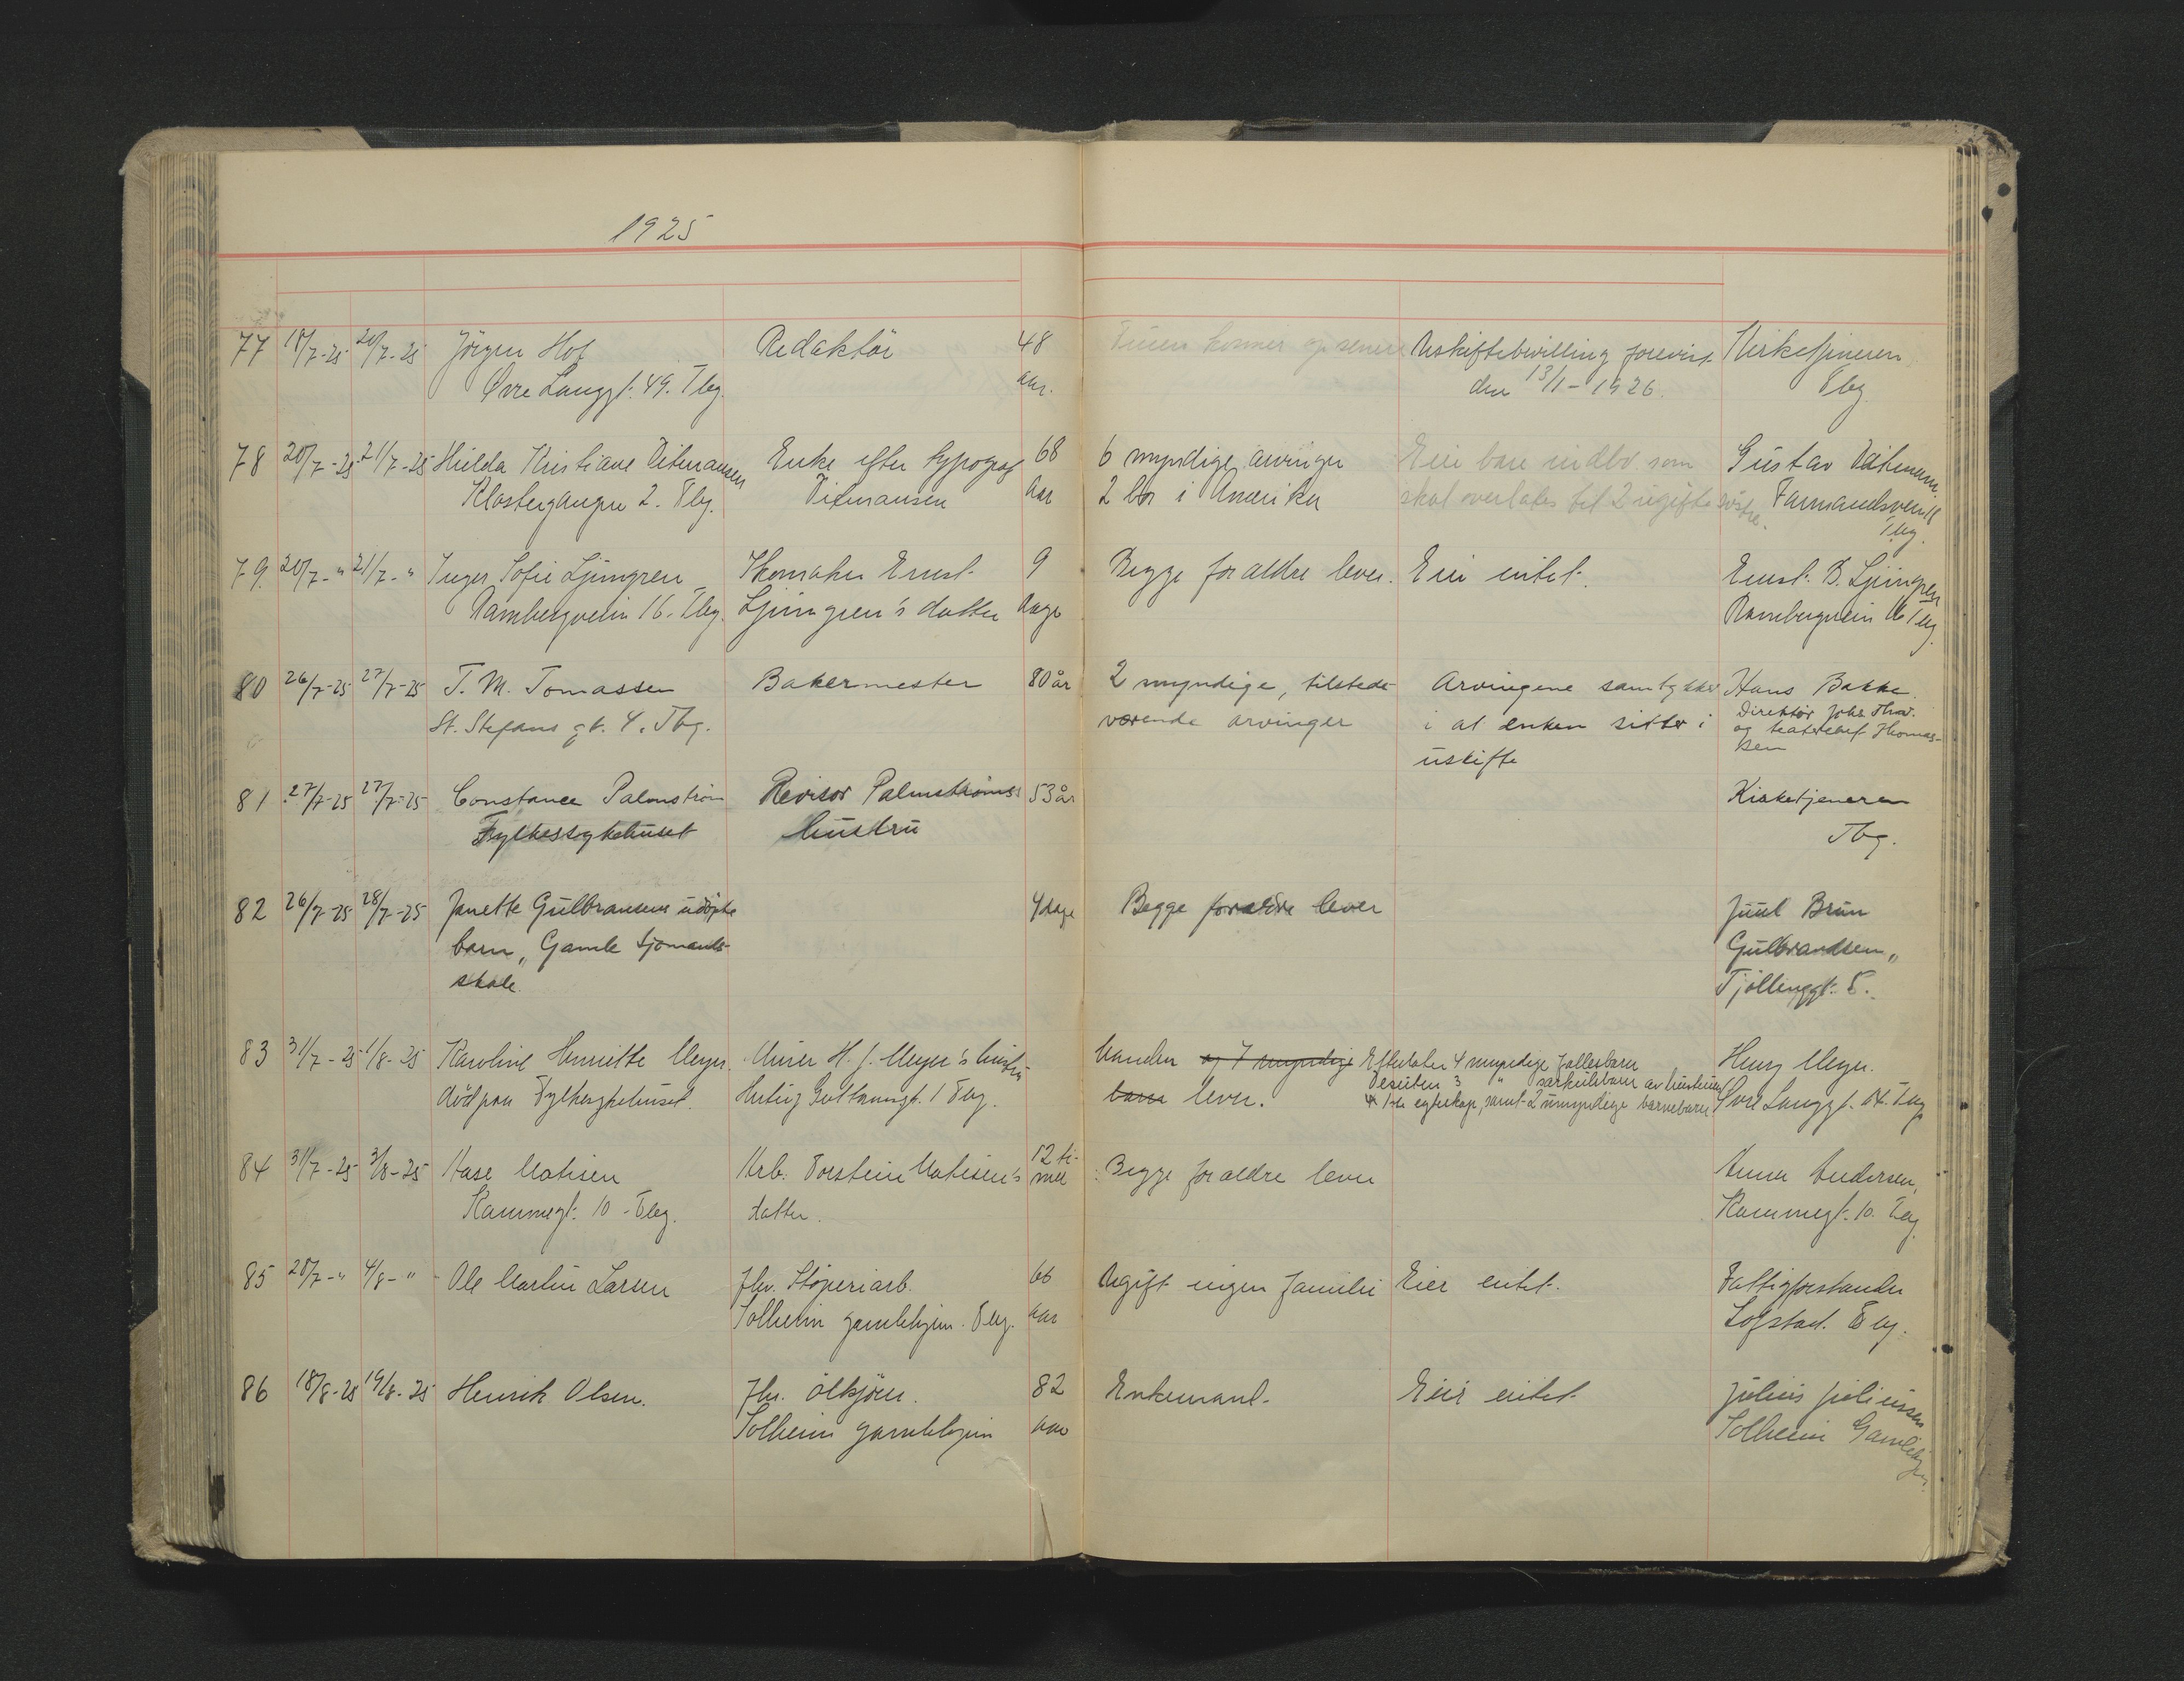 1925
77 18/7-25 20/7-25 Jörgen Hof Redaktör 48 Fruen kommer op senere Uskiftebevilling forevist Kirketjeneren
Övre Langgt. 49. Tbg. aar. den 13/1-1926. Tbg
78 20/7-25 21/7-25 Hilda Kristiane Ditmansen Enke efter typograf 68 6 myndige arvinger Eier bare indbo som Gustav
Klostergangen 2. Tbg. Ditmansen aar 2 bor i Amerika skal overlates til 2 ugifte söstre. Farmandsveien
Tbg.
79. 20/7-" 21/7-" Inger Sofie Ljungren Skomaker Ernst 9 Begge foraldre lever. Eier intet. Ernst B. Ljungren
Rambergveien 16. Tbg. Ljungren's datter dage Rambergveien 16 Tbg.
80 26/7-25 27/7-25 T. M. Tomassen Bakermester 80 år 2 myndige, tilstede Arvingene samtykker Hans Bakke.
St. Stefans gt. 4. Tbg. værende arvinger i at enken sitter i Direktör Johs Thor.
uskifte og teaterchef Thomas-
sen
81 27/7-25 27/7-25 Constance Palmström Revisor Palmströms 53 år Kirketjeneren
Fylkessykehuset hustru Tbg.
82 26/7-25 28/7-25 Janette Gulbransens udöpte 4 dage Begge foraldre lever Juul Brun
barn, Gamle Sjömands- Gulbrandsen,,
skole. Tjöllinggt. 5.
83 31/7-25 1/8-25 Karoline Henriette Meyer. Murer H. J. Meyer's hustru Manden og 7 myndige Efterlater 4 myndige fællesbarn Henry Meyer.
död paa Fylkessykehuset. Hertug Guttormsgt. 1 Tbg. barn lever. Desuten 3 " særkulsbarn av hustruens
1ste egteskap, samt 2 umyndige barnebarn. Övre Langgt. 14. Tbg
84 31/7-25 3/8-25 Aase Matisen Arb. Torstein Matisen's 12 ti- Begge foraldre lever Anna Andersen,
Kammegt. 10 - Tbg. datter. mer Kammegt. 10. Tbg
85 28/7-" 4/8-" Ole Martin Larsen Fhv. Stöperiarb. 66 Ugift ingen familie Eier intet. Fattigforstander
Solheim gamlehjem. Tbg. aar Lofstad. Tbg.
86 18/8-25 19/8-25 Henrik Olsen. Fhv. ölkjörer. 82 Enkemand. Eier intet Julius Juliussen
Solheim gamlehjem aar Solheim Gamlehjem